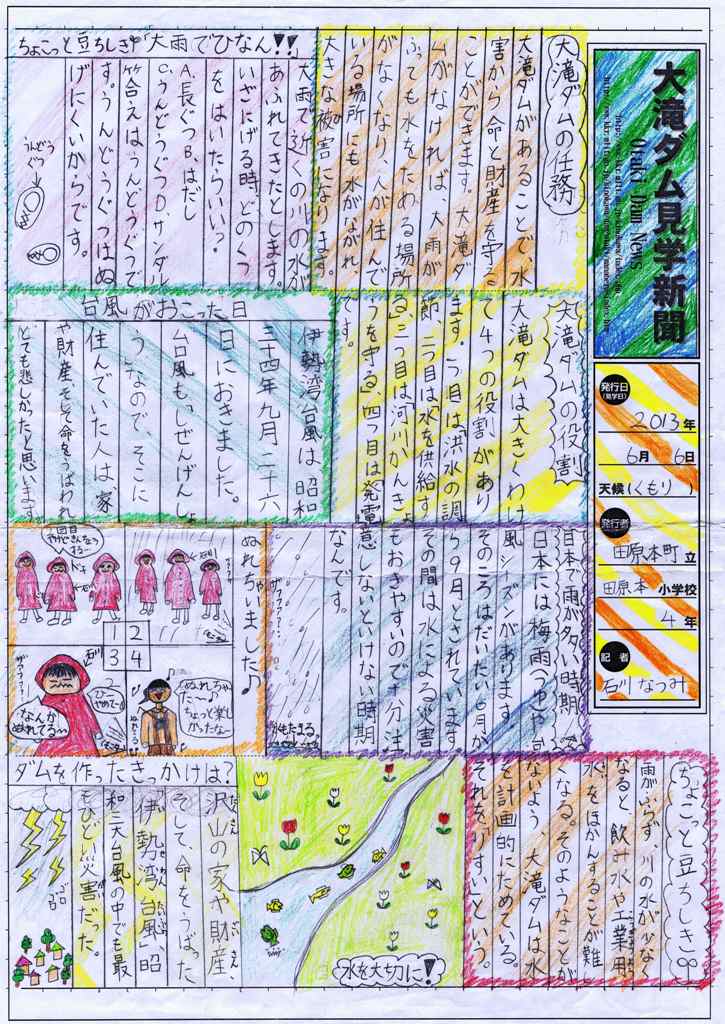 大滝ダム見学新聞
Otaki Dam News
発行日
(見学日)
2013年
6月 6日
天候(くもり)
発行者
田原本町 立
田原本 小学校
4 年
記者
石川 なつみ
大滝ダムの任務
大滝ダムがあることで、水
害から命と財産を守る
ことができます。大滝ダ
ムがなければ、大雨が
ふっても水をためる場所
がなくなり、人が住んで
いる場所にも水がながれ、
大きな被害になります。
ちょこっと豆ちしき「大雨でひなん!!」
大雨で近くの川の水が
あふれてきたとします。
いざにげる時、どのくつ
をはいたらいい?
A.長ぐつB.はだし
C.うんどうぐつD.サンダル
答えはうんどうぐつで
す。うんどうぐつはぬ
げにくいからです。
うんどう
ぐつ
大滝ダムの役割
大滝ダムは大きくわけ
て4つの役割があり
ます。一つ目は「洪水の調
節、二つ目は「水を供給す
る」、三つ目は「河川かんきょ
うを守る」、四つ目は「発電」
です。
台風がおこった日
伊勢湾台風は昭和
三十四年九月二十六
日におきました。
台風もしぜんげんしょ
うなので、そこに
住んでいた人は、家
や財産、そして命をうばわれ
とても悲しかったと思います。
日本で雨が多い時期
日本には梅雨(つゆ)や台
風シーズンがあります。
そのころはだいたい6月か
ら9月とされています。
その間は水による災害
もおきやすいので十分注
意しないといけない時期
なんです。
ぬれちゃいました♪
1
2
3
4
なんか
ぬれてる~
ぬれちゃっ
た~♪
ちょっと楽し
かったな~
ちょこっと豆ちしき
雨がふらず、川の水が少なく
なると、飲み水や工業用
水をほかんすることが難し
くなる。そのようなことが
ないよう、大滝ダムは水
を計画的にためている。
それを「りすい」という。
水を大切に!
ダムを作ったきっかけは?
沢山の家や財産、
そして、命をうばった
「伊勢湾台風」、昭
和三大台風の中でも最
もひどい災害だった。
ゴロ
ゴロ